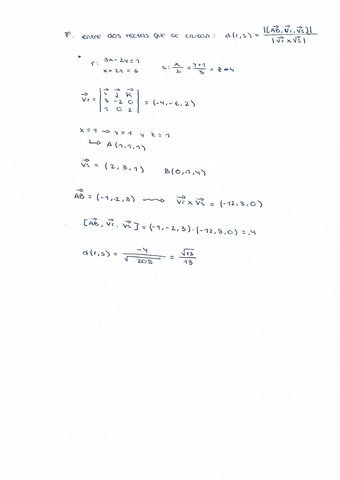 entre dos rectas que se cruzan: d(r,s) = |[AB, Vr, Vs]| / |Vr x Vs|
r: 3x-2y=1
x+2z=3
s: x/2 = y+1/3 = z-4
Vr = |i j k; 3 -2 0; 1 0 2| = (-4,-6,2)
x=1 → y=1 y z=1
↳ A(1,1,1)
Vs = (2,3,1) B(0,1,4)
AB = (-1,-2,3) Vr x Vs = (-12,8,0)
[AB, Vr, Vs] = (-1,-2,3)·(-12,8,0) = -4
d(r,s) = -4/√208 = √13/13